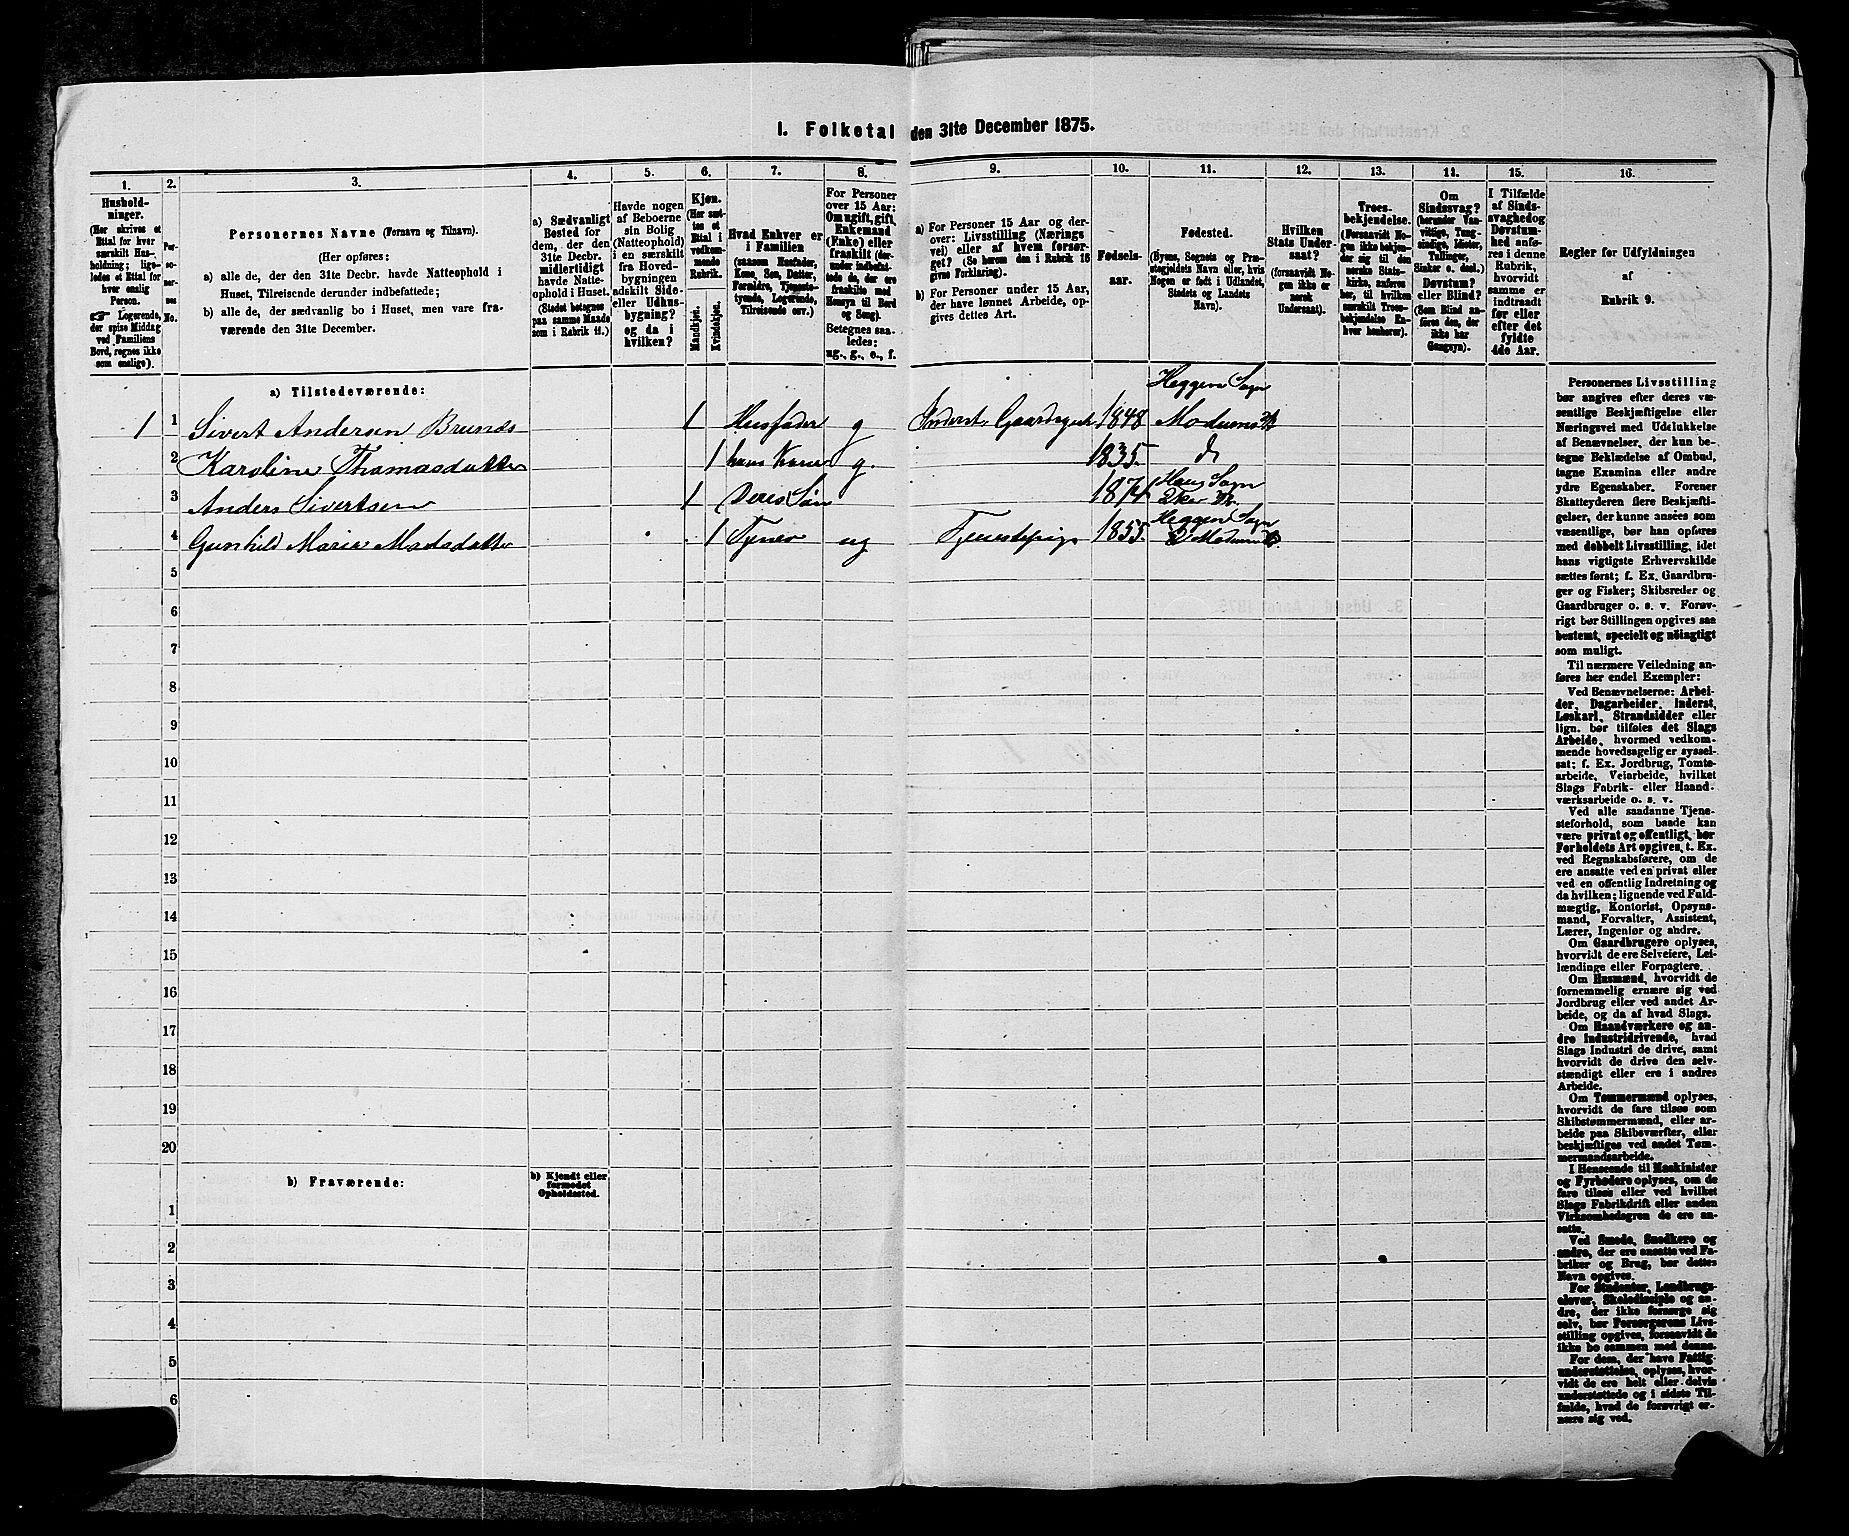 1. Folketal den 31te December 1875.
1. 2. 3. 4. 5. 6. 7. 8. 9. 10. 11. 12. 13. 14. 15. 16.
Hushold-
ninger.
(Her skrives et
Ettal for hver
særskilt Hus-
holdning; lige-
ledes et Ettal for
hver enslig
Person.
☞ Logerende,
der spise Middag
ved Familiens
Bord, regnes ikke
som enslige).
Per-
so-
ner-
nes
No.
Personernes Navne (Fornavn og Tilnavn).
(Her opføres:
a) alle de, der den 31te Decbr. havde Natteophold i
Huset, Tilreisende derunder indbefattede;
b) alle de, der sædvanlig bo i Huset, men vare fra-
værende den 31te December.
a) Sædvanligt
Bosted for
dem, der den
31te Decbr.
midlertidigt
havde Natte-
ophold i Huset.
(Stedet betegnes
paa samme Maade
som i Rubrik 11.)
Havde nogen
af Beboerne
sin Bolig
(Natteophold)
i en særskilt
fra Hoved-
bygningen
adskilt Side-
eller Udhus-
bygning?
og da i
hvilken?
Kjøn.
(Her sæt-
tes et
Ettal i
vedkom-
mende
Rubrik.
Mandkjøn.
Kvindekjøn.
Hvad Enhver er
i Familien
(saasom Husfader,
Kone, Søn, Datter,
Forældre, Tjeneste-
tyende, Logerende,
Tilreisende osv.)
For Personer
over 15 Aar:
Om ugift, gift,
Enkemand
(Enke) eller
fraskilt (der-
under indbefat-
tede de, der ere
fraskilte med
Hensyn til Bord
og Seng).
Betegnes saa-
ledes:
ug., g., e., f.
a) For Personer 15 Aar og der-
over: Livsstilling (Nærings
vei) eller af hvem forsør-
get? (Se herom den i Rubrik 16
givne Forklaring.)
b) For Personer under 15 Aar,
der have lønnet Arbeide, op-
gives dettes Art.
Fødsels-
aar.
Fødested.
(Byens, Sognets og Præ-
stegjeldets Navn eller, hvis
Nogen er født i Udlandet,
Stedets og Landets
Navn).
Hvilken
Stats Under-
saat?
(forsaavidt No-
gen ikke er
norsk
Undersaat).
Troes-
bekjendelse.
(Forsaavidt No-
gen ikke bekjen-
der sig til den
norske Stats-
kirke, anføres
her, til hvilken
særskilt Troes-
bekjendelse En-
hver henhører).
Om
Sindssvag?
(herunder Van-
vittige, Tung-
sindige, Idioter,
Tullinger,
Sinker o. desl.)
Døvstum?
eller Blind?
(Som Blind an-
føres den, der
ikke har
Gangsyn).
I Tilfælde
af Sinds-
svaghed og
Døvstum-
hed anfø-
res i denne
Rubrik,
hvorvidt
samme er
indtraadt
før eller
efter det
fyldte
4de Aar.
Regler for Udfyldningen
af
Rubrik 9.
a) Tilstedeværende:
Heggen Sogn
1 1 Sivert Andersen 1 Husfader g Inderst, 1848 Modums
2 Karoline Thomasdatter 1 hans Kone g. 1835. do
3 Anders Sivertsen 1 Deres Søn 1874 Sogn
Heggen Sogn
4 Gunhild Marie Madsdatter 1 Tjener ug Tjenestepige 1855. Modum
5
6
7
8
9
10
11
12
13
14
15
16
17
18
19
20
b) Fraværende:
b) Kjendt eller
formodet
Opholdssted.
1
2
3
4
5
6
Personernes Livsstilling
bør angives efter deres væ-
sentlige Beskjæftigelse eller
Næringsvei med Udelukkelse
af Benævnelser, der kun be-
tegne Beklædelse af Ombud,
tagne Examina eller andre
ydre Egenskaber. Forener
Skatteyderen flere Beskjæfti-
gelser, der kunne ansées som
væsentlige, bør han opføres
med dobbelt Livsstilling, idet
hans vigtigste Erhvervskilde
sættes først; f. Ex. Gaardbru-
ger og Fisker; Skibsreder og
Gaardbruger o. s. v. Forøv-
rigt bør Stillingen opgives saa
bestemt, specielt og nøiagtigt
som muligt.
Til nærmere Veiledning an-
føres her endel Exempler:
Ved Benævnelserne: Arbei-
der, Dagarbeider, Inderst,
Løskarl, Strandsidder eller
lign. bør tilføies det Slags
Arbeide, hvormed vedkom-
mende hovedsagelig er syssel-
sat; f. Ex. Jordbrug, Tomte-
arbeide, Veiarbeide, hvilket
Slags Fabrik- eller Haand-
værksarbeide o. s. v.
Ved alle saadanne Tjene-
steforhold, som baade kan
være privat og offentligt, bør
Forholdets Art opgives, t. Ex.
ved Regnskabsførere, om de
ere ansatte ved en privat eller
ved en offentlig Indretning og
da hvilken; lignende ved Fuld-
mægtig, Kontorist, Opsyns-
mand, Forvalter, Assistent,
Lærer, Ingeniør og andre.
Om Gaardbrugere oplyses,
hvorvidt de ere Selveiere, Lei-
lændinge eller Forpagtere.
Om Husmænd, hvorvidt de
fornemmelig ernære sig ved
Jordbrug eller ved andet Ar-
beide, og da af hvad Slags.
Om Haandværkere og an-
dre Industridrivende, hvad
Slags Industri de drive, samt
hvorvidt de drive den selv-
stændigt eller ere i andres
Arbeide.
Om Tømmermænd oplyses,
hvorvidt de fare tilsøs som
Skibstømmermænd, eller ar-
beide paa Skibsværfter, eller
beskjæftiges ved andet Tøm-
mermandsarbeide.
I Henseende til Maskinister
og Fyrbødere oplyses, om de
fare tilsøs eller ved hvilket
Slags Fabrikdrift eller anden
Virksomhedsgren de ere an-
satte.
Ved Smede, Snedkere og
andre, der ere ansatte ved Fa-
briker og Brug, bør dettes
Navn opgives.
For Studenter, Landbrugs-
elever, Skoledisciple og an-
dre, der ikke forsørge sig
selv, bør Forsørgerens Livs-
stilling opgives, forsaavidt de
ikke bo sammen med denne.
For dem, der have Fattig-
understøttelse, oplyses, hvor-
vidt de ere helt eller delvis
understøttede og i sidste Til-
fælde, hvad de forøvrigt er-
nære sig ved.